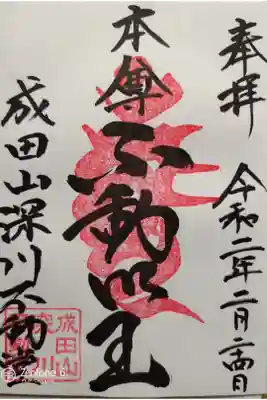 奉拝
令和二年二月二十四日
本尊
不動明王
成田山深川不動堂
成田山
Zenfone 6